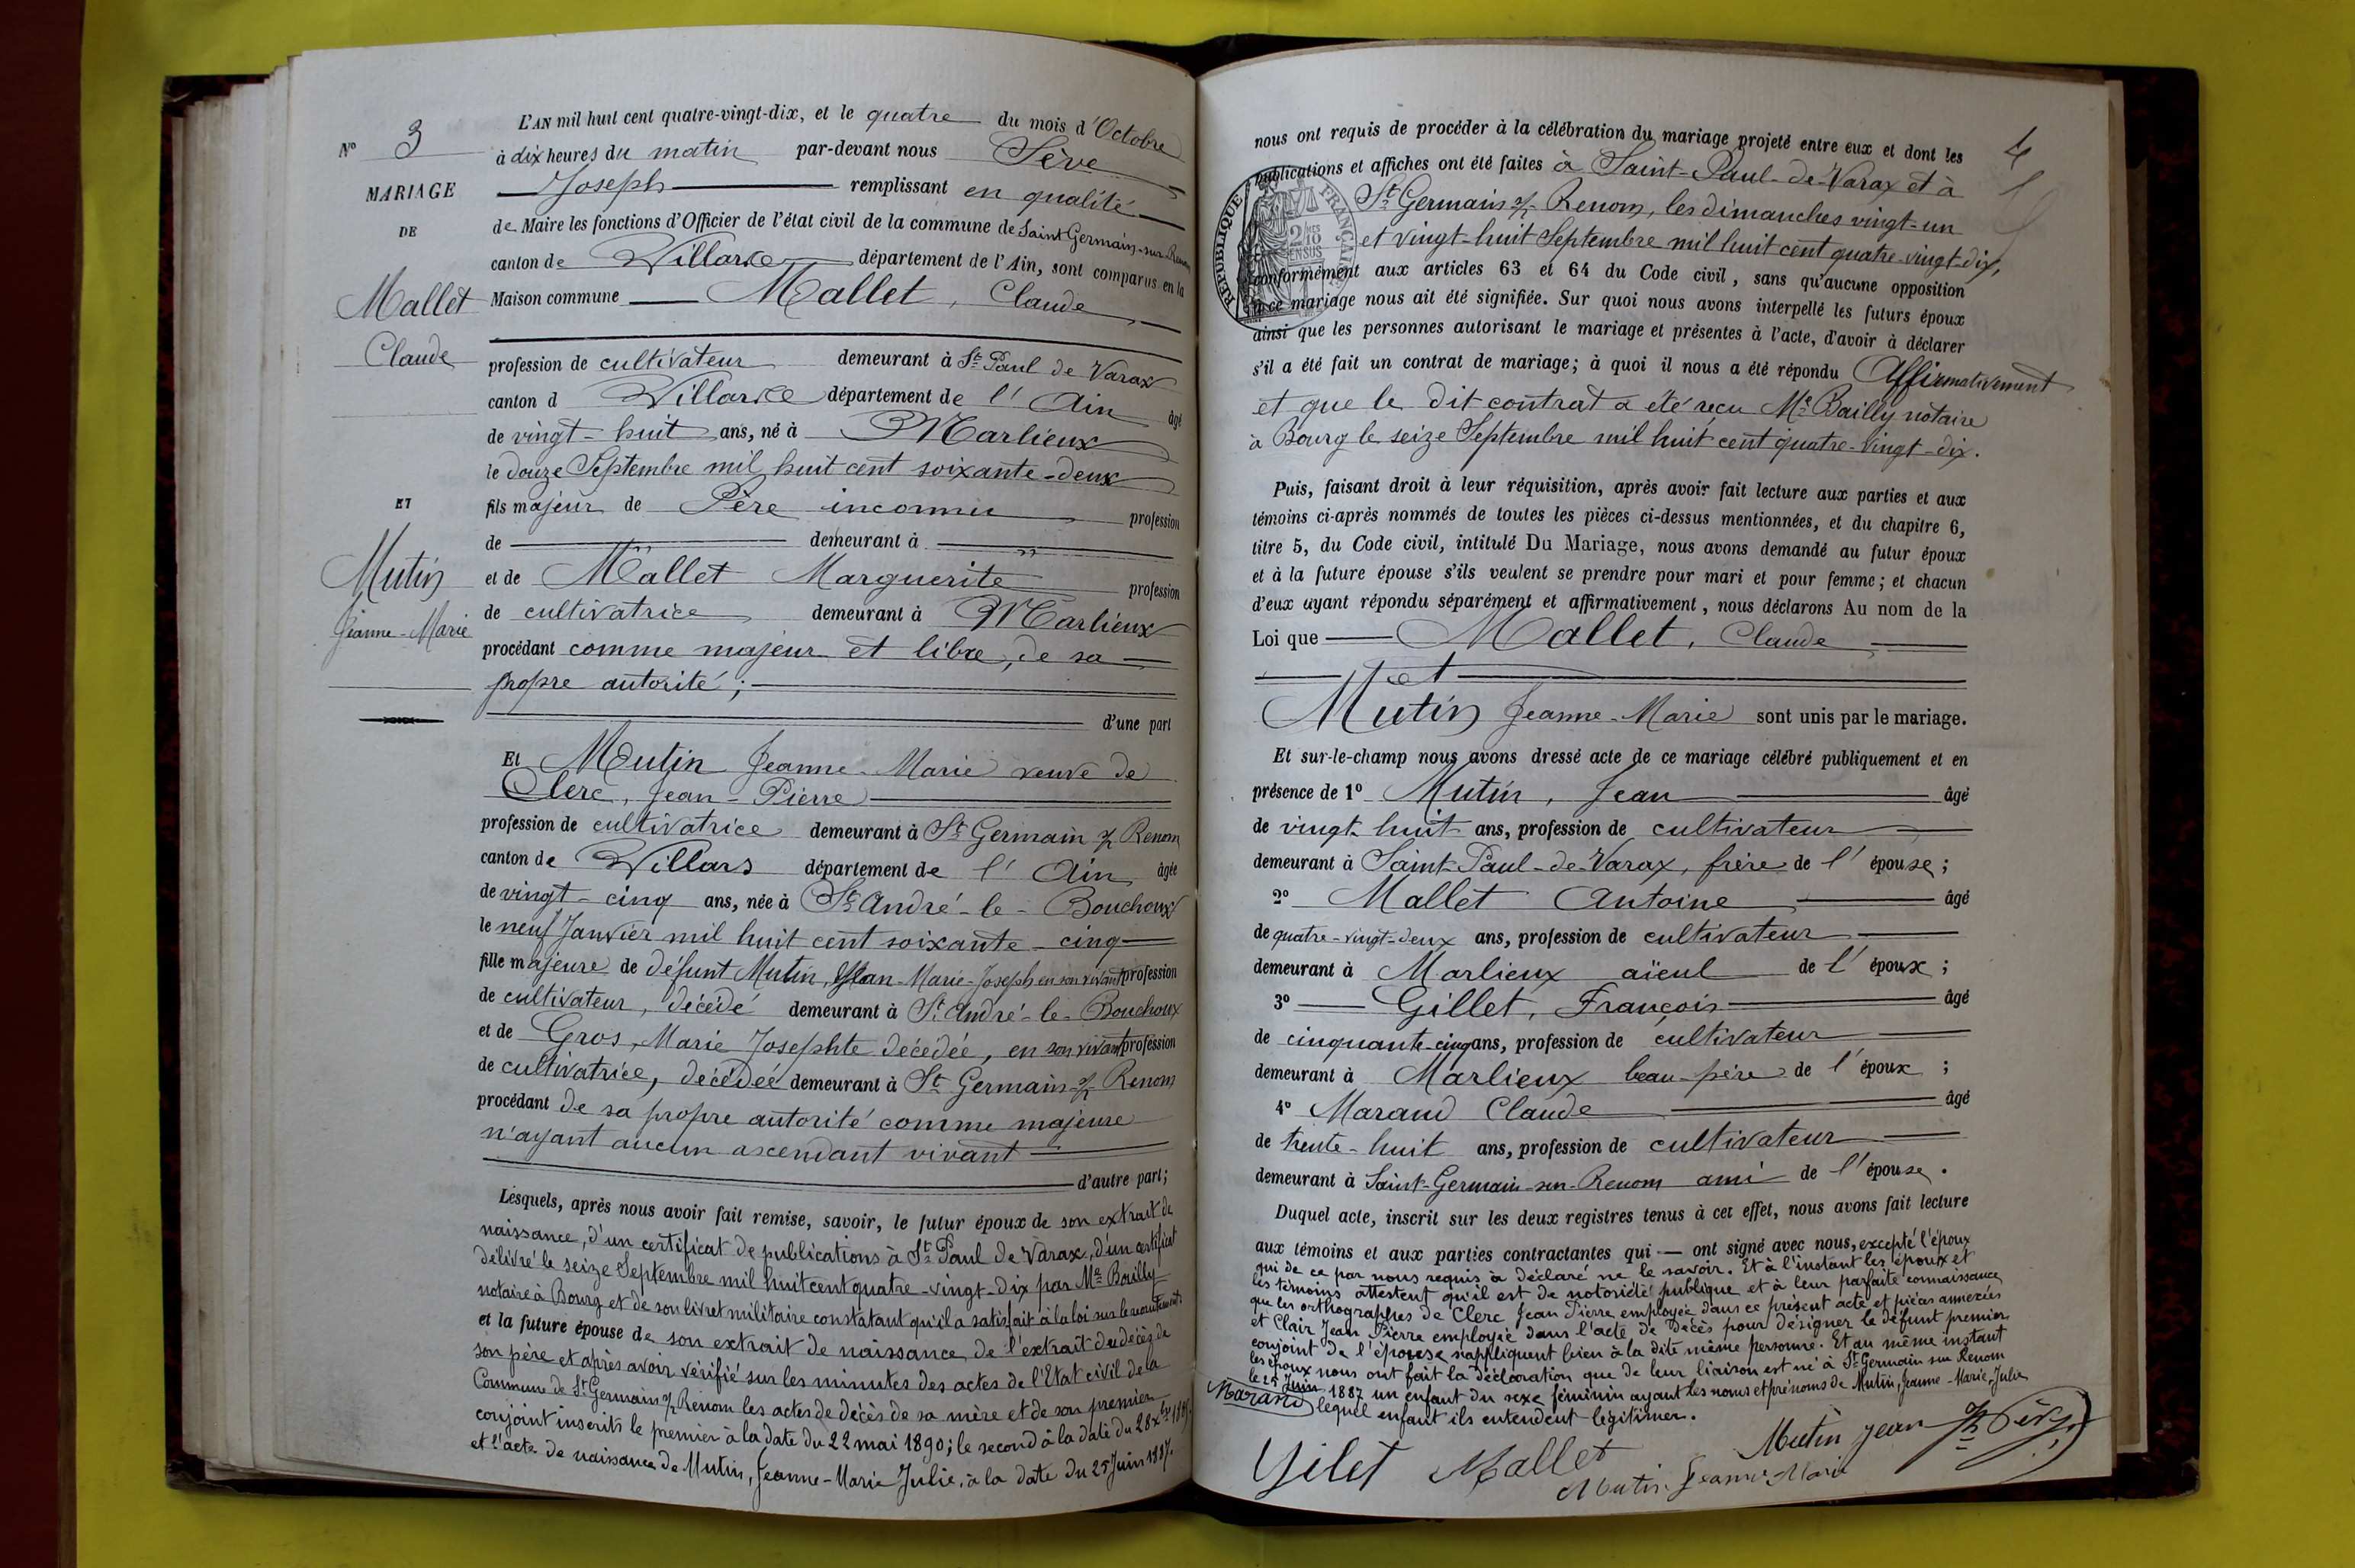 L'AN mil huit cent quatre-vingt-dix, et le quatre du mois d'Octobre
N° 3
à dix heures du matin par-devant nous Sève
MARIAGE
Joseph remplissant en qualité
DE
de Maire les fonctions d'Officier de l'état civil de la commune de Saint Germain-sur-Renom
canton de Villars département de l'Ain, sont comparus en la
Mallet
Maison commune Mallet, Claude
Claude
profession de cultivateur demeurant à St Paul de Varax
canton d Villars département de l'Ain âgé
de vingt-huit ans, né à Marlieux
le douze Septembre mil huit cent soixante-deux
ET
fils majeur de Père inconnu profession
de demeurant à
Mutin
et de Mallet Marguerite profession
Jeanne-Marie
de cultivatrice demeurant à Marlieux
procédant comme majeur et libre, de sa
propre autorité;
d'une part
Et Mutin Jeanne-Marie veuve de
Clerc, Jean-Pierre
profession de cultivatrice demeurant à St Germain s/ Renom
canton de Villars département de l'Ain âgée
de vingt-cinq ans, née à St André-le-Bouchoux
le neuf Janvier mil huit cent soixante-cinq
fille majeure de défunt Mutin, Jean-Marie-Joseph en son vivant profession
de cultivateur, décédé demeurant à St André-le-Bouchoux
et de Gros, Marie Josephte décédée, en son vivant profession
de cultivatrice, décédée demeurant à St Germain s/ Renom
procédant de sa propre autorité comme majeure
n'ayant aucun ascendant vivant
d'autre part;
Lesquels, après nous avoir fait remise, savoir, le futur époux de son extrait de
naissance, d'un certificat de publications à St Paul de Varax, d'un certificat
délivré le seize Septembre mil huit cent quatre-vingt-dix par Me Bailly
notaire à Bourg et de son livret militaire constatant qu'il a satisfait à la loi sur le recrutement
et la future épouse de son extrait de naissance de l'extrait du décès de
son père et après avoir vérifié sur les minutes des actes de l'Etat civil de la
Commune de St Germain s/ Renom les actes de décès de sa mère et de son premier
conjoint inscrits le premier à la date du 22 mai 1890; le second à la date du 28 Xbre
et l'acte de naissance de Mutin, Jeanne-Marie Julie, à la date du 25 Juin 1887.
4
nous ont requis de procéder à la célébration du mariage projeté entre eux et dont les
publications et affiches ont été faites à Saint-Paul-de-Varax et à
St Germain s/ Renom, les dimanches vingt-un
et vingt-huit Septembre mil huit cent quatre-vingt-dix,
conformément aux articles 63 et 64 du Code civil, sans qu'aucune opposition
à ce mariage nous ait été signifiée. Sur quoi nous avons interpellé les futurs époux
ainsi que les personnes autorisant le mariage et présentes à l'acte, d'avoir à déclarer
s'il a été fait un contrat de mariage; à quoi il nous a été répondu Affirmativement
et que le dit contrat a été reçu Me Bailly notaire
à Bourg le seize Septembre mil huit cent quatre-vingt-dix.
RÉPUBLIQUE FRANÇAISE
2/10 EN SUS
Puis, faisant droit à leur réquisition, après avoir fait lecture aux parties et aux
témoins ci-après nommés de toutes les pièces ci-dessus mentionnées, et du chapitre 6,
titre 5, du Code civil, intitulé Du Mariage, nous avons demandé au futur époux
et à la future épouse s'ils veulent se prendre pour mari et pour femme; et chacun
d'eux ayant répondu séparément et affirmativement, nous déclarons Au nom de la
Loi que Mallet, Claude
et
Mutin Jeanne-Marie sont unis par le mariage.
Et sur-le-champ nous avons dressé acte de ce mariage célébré publiquement et en
présence de 1° Mutin, Jean âgé
de vingt-huit ans, profession de cultivateur
demeurant à Saint-Paul-de-Varax, frère de l'épouse;
2° Mallet Antoine âgé
de quatre-vingt-deux ans, profession de cultivateur
demeurant à Marlieux aïeul de l'époux;
3° Gillet, François âgé
de cinquante-cinq ans, profession de cultivateur
demeurant à Marlieux beau-père de l'époux;
4° Marand Claude âgé
de trente-huit ans, profession de cultivateur
demeurant à Saint-Germain-sur-Renom ami de l'épouse.
Duquel acte, inscrit sur les deux registres tenus à cet effet, nous avons fait lecture
aux témoins et aux parties contractantes qui ont signé avec nous, excepté l'époux
qui de ce par nous requis à déclaré ne le savoir. Et à l'instant les époux et
les témoins attestent qu'il est de notoriété publique et à leur parfaite connaissance
que les orthographes de Clerc Jean Pierre employée dans ce présent acte et pièces annexées
et Clair Jean Pierre employée dans l'acte de décès pour désigner le défunt premier
conjoint de l'épouse s'appliquent bien à la dite même personne. Et au même instant
les époux nous ont fait la déclaration que de leur liaison est né à St Germain sur Renom
le 25 Juin 1887 un enfant du sexe féminin ayant les noms et prénoms de Mutin, Jeanne-Marie-Julie
lequel enfant ils entendent légitimer.
Marand
Gilet Mallet Mutin Jean Sève
Mutin Jeanne Marie